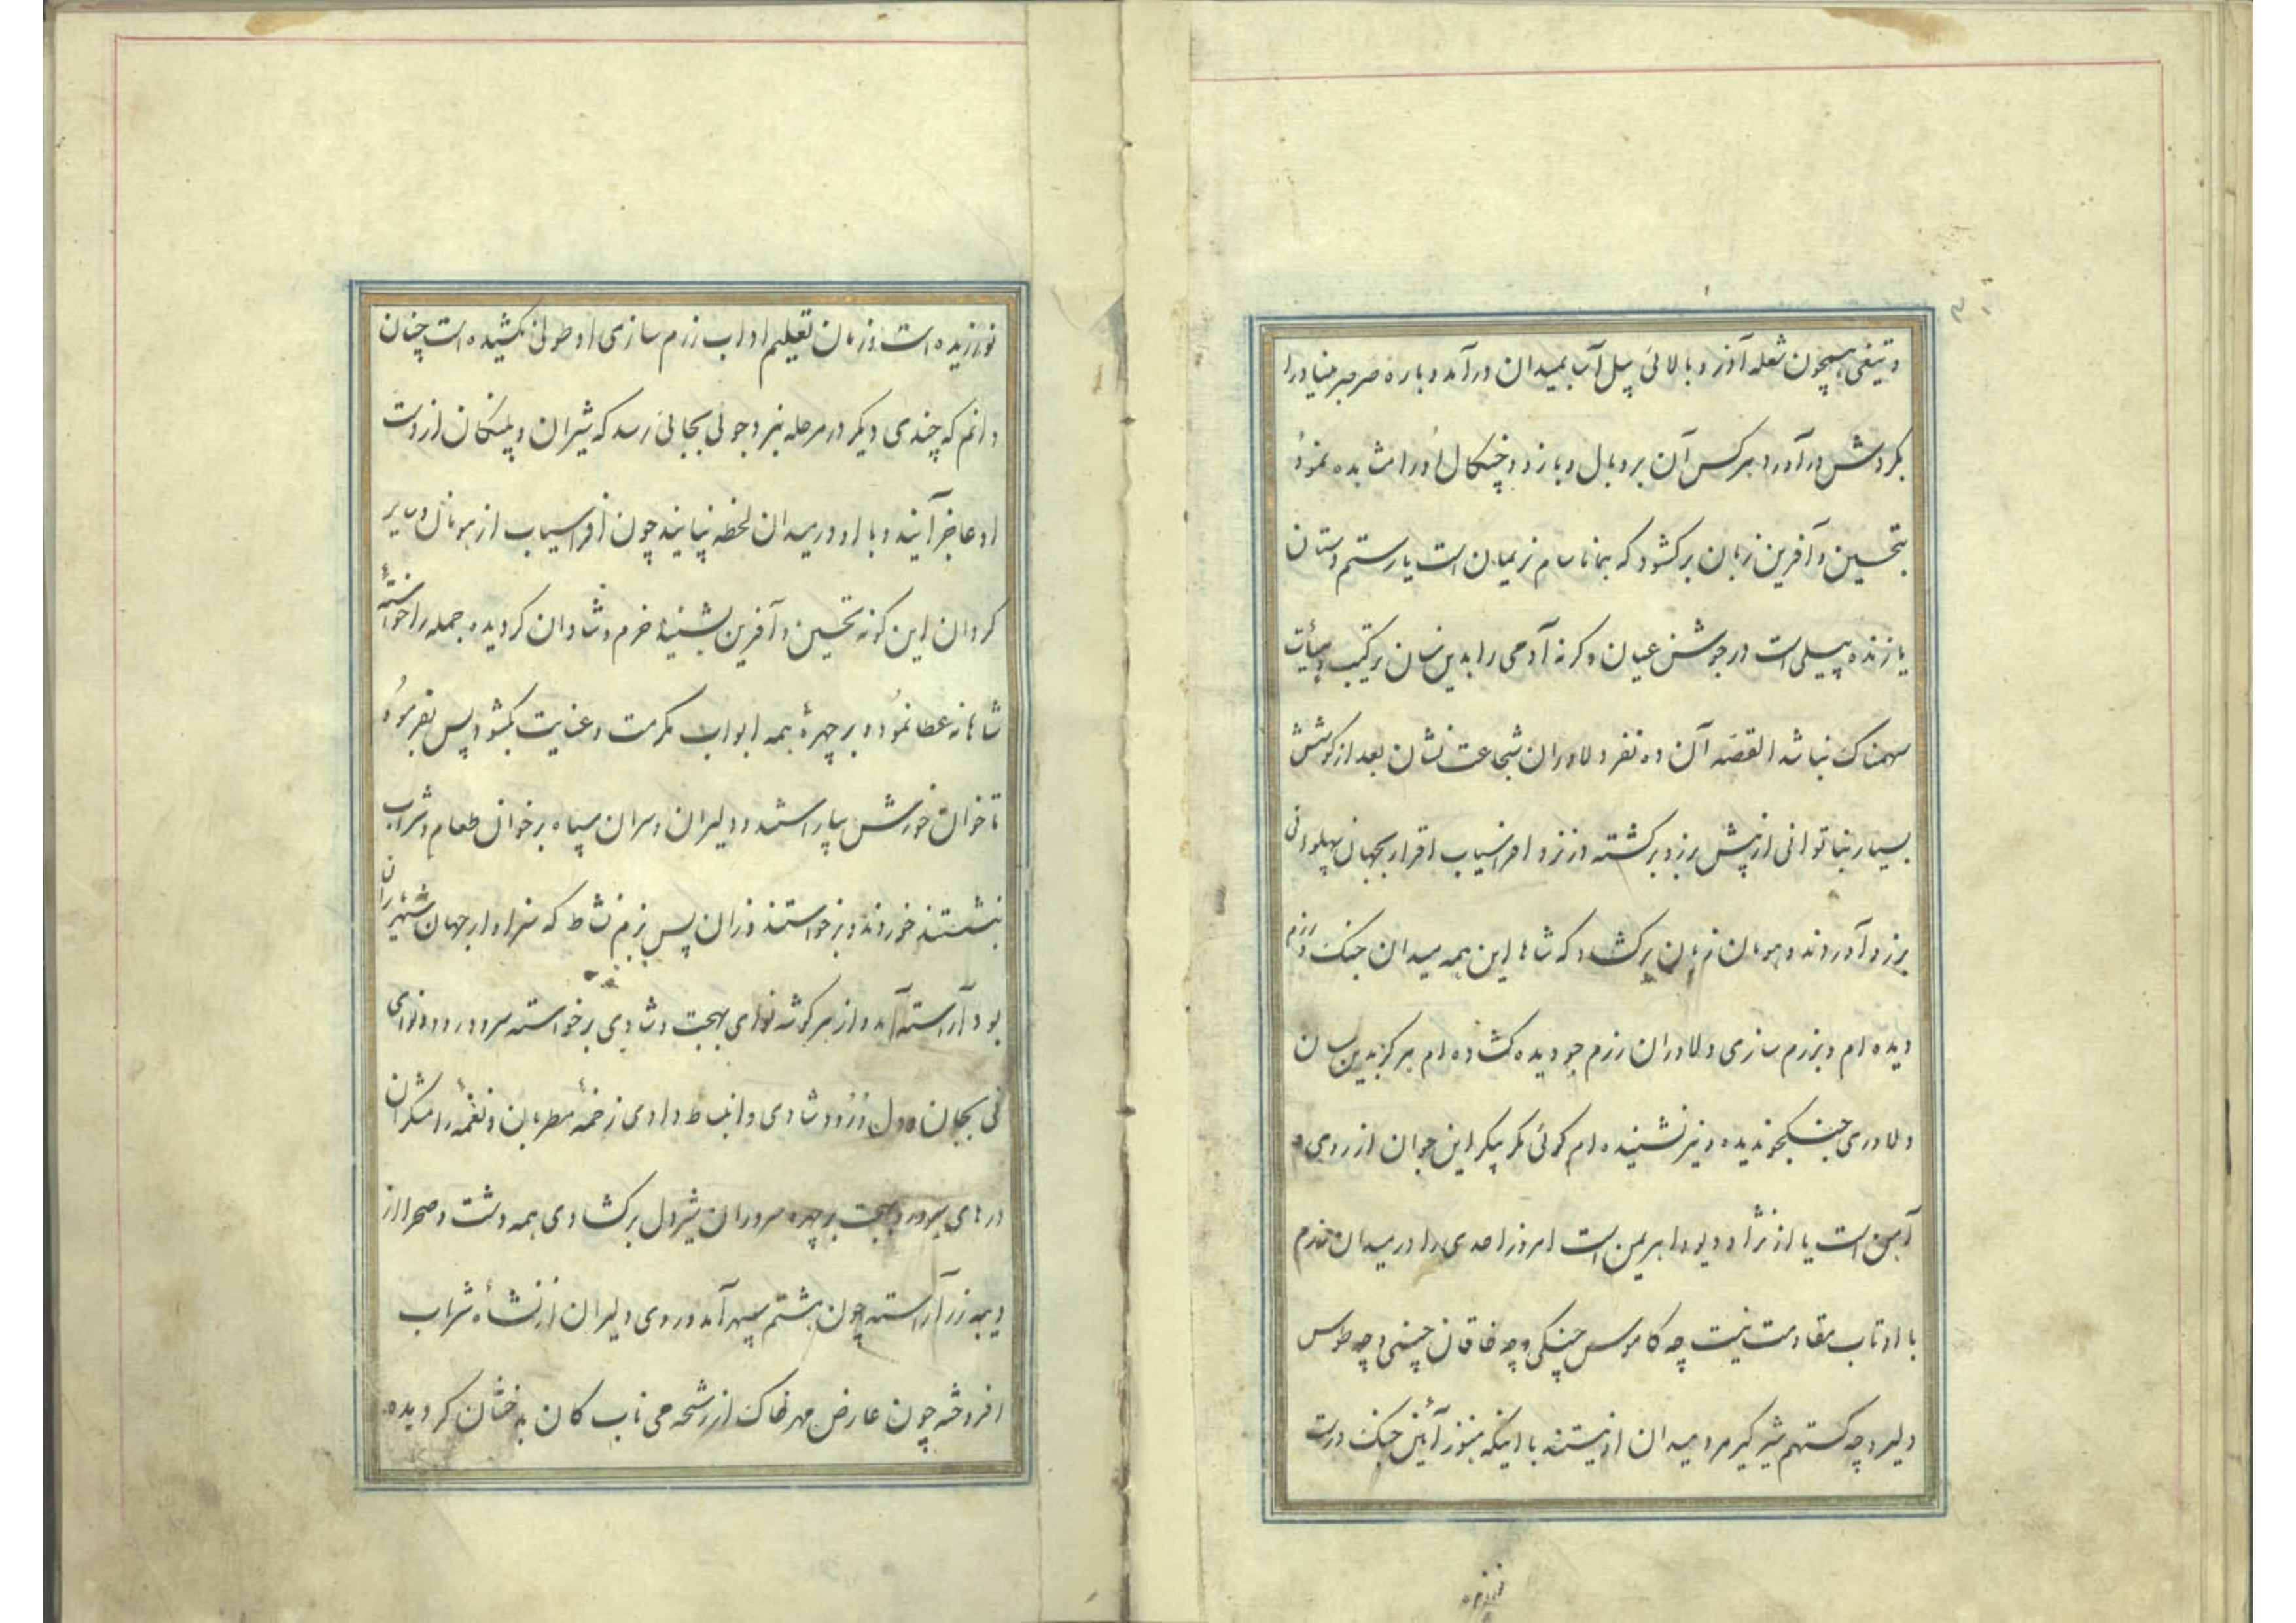 و تیغی همچون شعله آذر و بالائی پیل آب بمیدان درآمد و باره صرصر
بگردش درآورد هر کس آن بر و بال و بازو و چنگال او را مشاهده نمود
بتحسین و آفرین زبان برگشود که همانا سام نریمان است یا رستم دستان
یا زنده پیلی است در جوشن عیان وگرنه آدمی را بدین سان ترکیب و هیأت
سهمناک نباشد القصه آن ده نفر دلاوران شجاعت نشان بعد از کوشش
بسیار بناتوانی از پیش برزو برگشته در نزد افراسیاب اقرار بجهان پهلوانی
برزو آوردند و هومان زبان برگشاد که شاها این همه میدان جنگ و رزم
دیده ام و بزرم سازی دلاوران رزم جو دیده گشاده ام هرگز بدین سان
دلاوری جنگجو ندیده و نیز نشنیده ام گوئی مگر پیکر این جوان از روی و
آهن است یا از نژاد دیو و اهریمن است امروز احدی را در میدان رزم
با او تاب مقاومت نیست چه کاموس جنگی و چه خاقان چینی و چه طوس
دلیر و چه گستهم شیرگیر مرد میدان او نیستند با اینکه هنوز آئین جنگ درست
نورزیده
نورزیده است و زمان تعلیم اداب رزم سازی او طولی نکشیده است چنان
دانم که چندی دیگر در مرحله نبرد جوئی بجائی رسد که شیران و پلنگان از دست
او عاجز آیند و با او در میدان لحظه نپایند چون افراسیاب از هومان و سایر
گردان این گونه تحسین و آفرین بشنید خرم و شادان گردیده جمله را خواسته
شاهانه عطا نمود و بر چهرهٔ همه ابواب مکرمت و عنایت بگشود پس بفرمود
تا خوان خورش بیاراستند و دلیران و سران سپاه بر خوان طعام و شراب
بنشستند خوردند و برخواستند و زان پس بزم نشاط که سزاوار جهان شهریاران
بود آراسته آمد و از هر گوشه نوای بهجت و شادی برخواسته سرود رود و نوای
نی بجان و دل درود شادی و انبساط دادی زخمهٔ مطربان و نغمهٔ رامشگران
درهای سرور و بهجت بر چهره سروران شیردل برگشادی همه دشت و صحرا از
دیبه زر آراسته چون هشتم سپهر آمد و روی دلیران از نشأه شراب
افروخته چون عارض مهر خاک از رشحه می ناب کان بدخشان گردیده